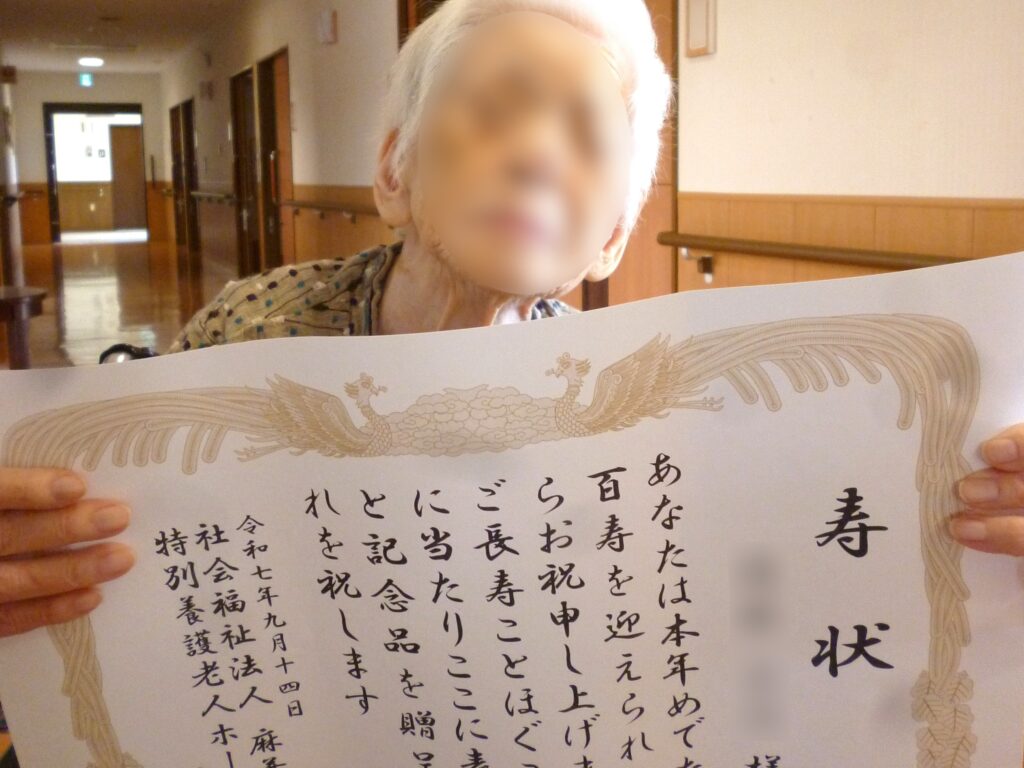 寿状
様
あなたは本年めでた
百寿を迎えられ
らお祝申し上げま
ご長寿ことほぐ
に当たりここに表
と記念品を贈呈
れを祝します
令和七年九月十四日
社会福祉法人 麻
特別養護老人ホー